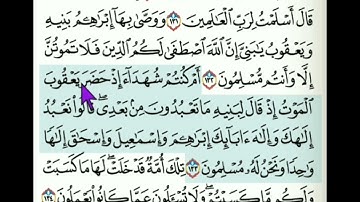 قَالَ أَسۡلَمۡتُ لِرَبِّ ٱلۡعَٰلَمِينَ ١٣١ وَوَصَّىٰ بِهَآ إِبۡرَٰهِـۧمُ بَنِيهِ
وَيَعۡقُوبُ يَٰبَنِيَّ إِنَّ ٱللَّهَ ٱصۡطَفَىٰ لَكُمُ ٱلدِّينَ فَلَا تَمُوتُنَّ
إِلَّا وَأَنتُم مُّسۡلِمُونَ ١٣٢ أَمۡ كُنتُمۡ شُهَدَآءَ إِذۡ حَضَرَ يَعۡقُوبَ
ٱلۡمَوۡتُ إِذۡ قَالَ لِبَنِيهِ مَا تَعۡبُدُونَ مِنۢ بَعۡدِيۖ قَالُواْ نَعۡبُدُ
إِلَٰهَكَ وَإِلَٰهَ ءَابَآئِكَ إِبۡرَٰهِـۧمَ وَإِسۡمَٰعِيلَ وَإِسۡحَٰقَ إِلَٰهٗا
وَٰحِدٗا وَنَحۡنُ لَهُۥ مُسۡلِمُونَ ١٣٣ تِلۡكَ أُمَّةٞ قَدۡ خَلَتۡۖ لَهَا مَا كَسَبَتۡ
وَلَكُم مَّا كَسَبۡتُمۡۖ وَلَا تُسۡـَٔلُونَ عَمَّا كَانُواْ يَعۡمَلُونَ ١٣٤